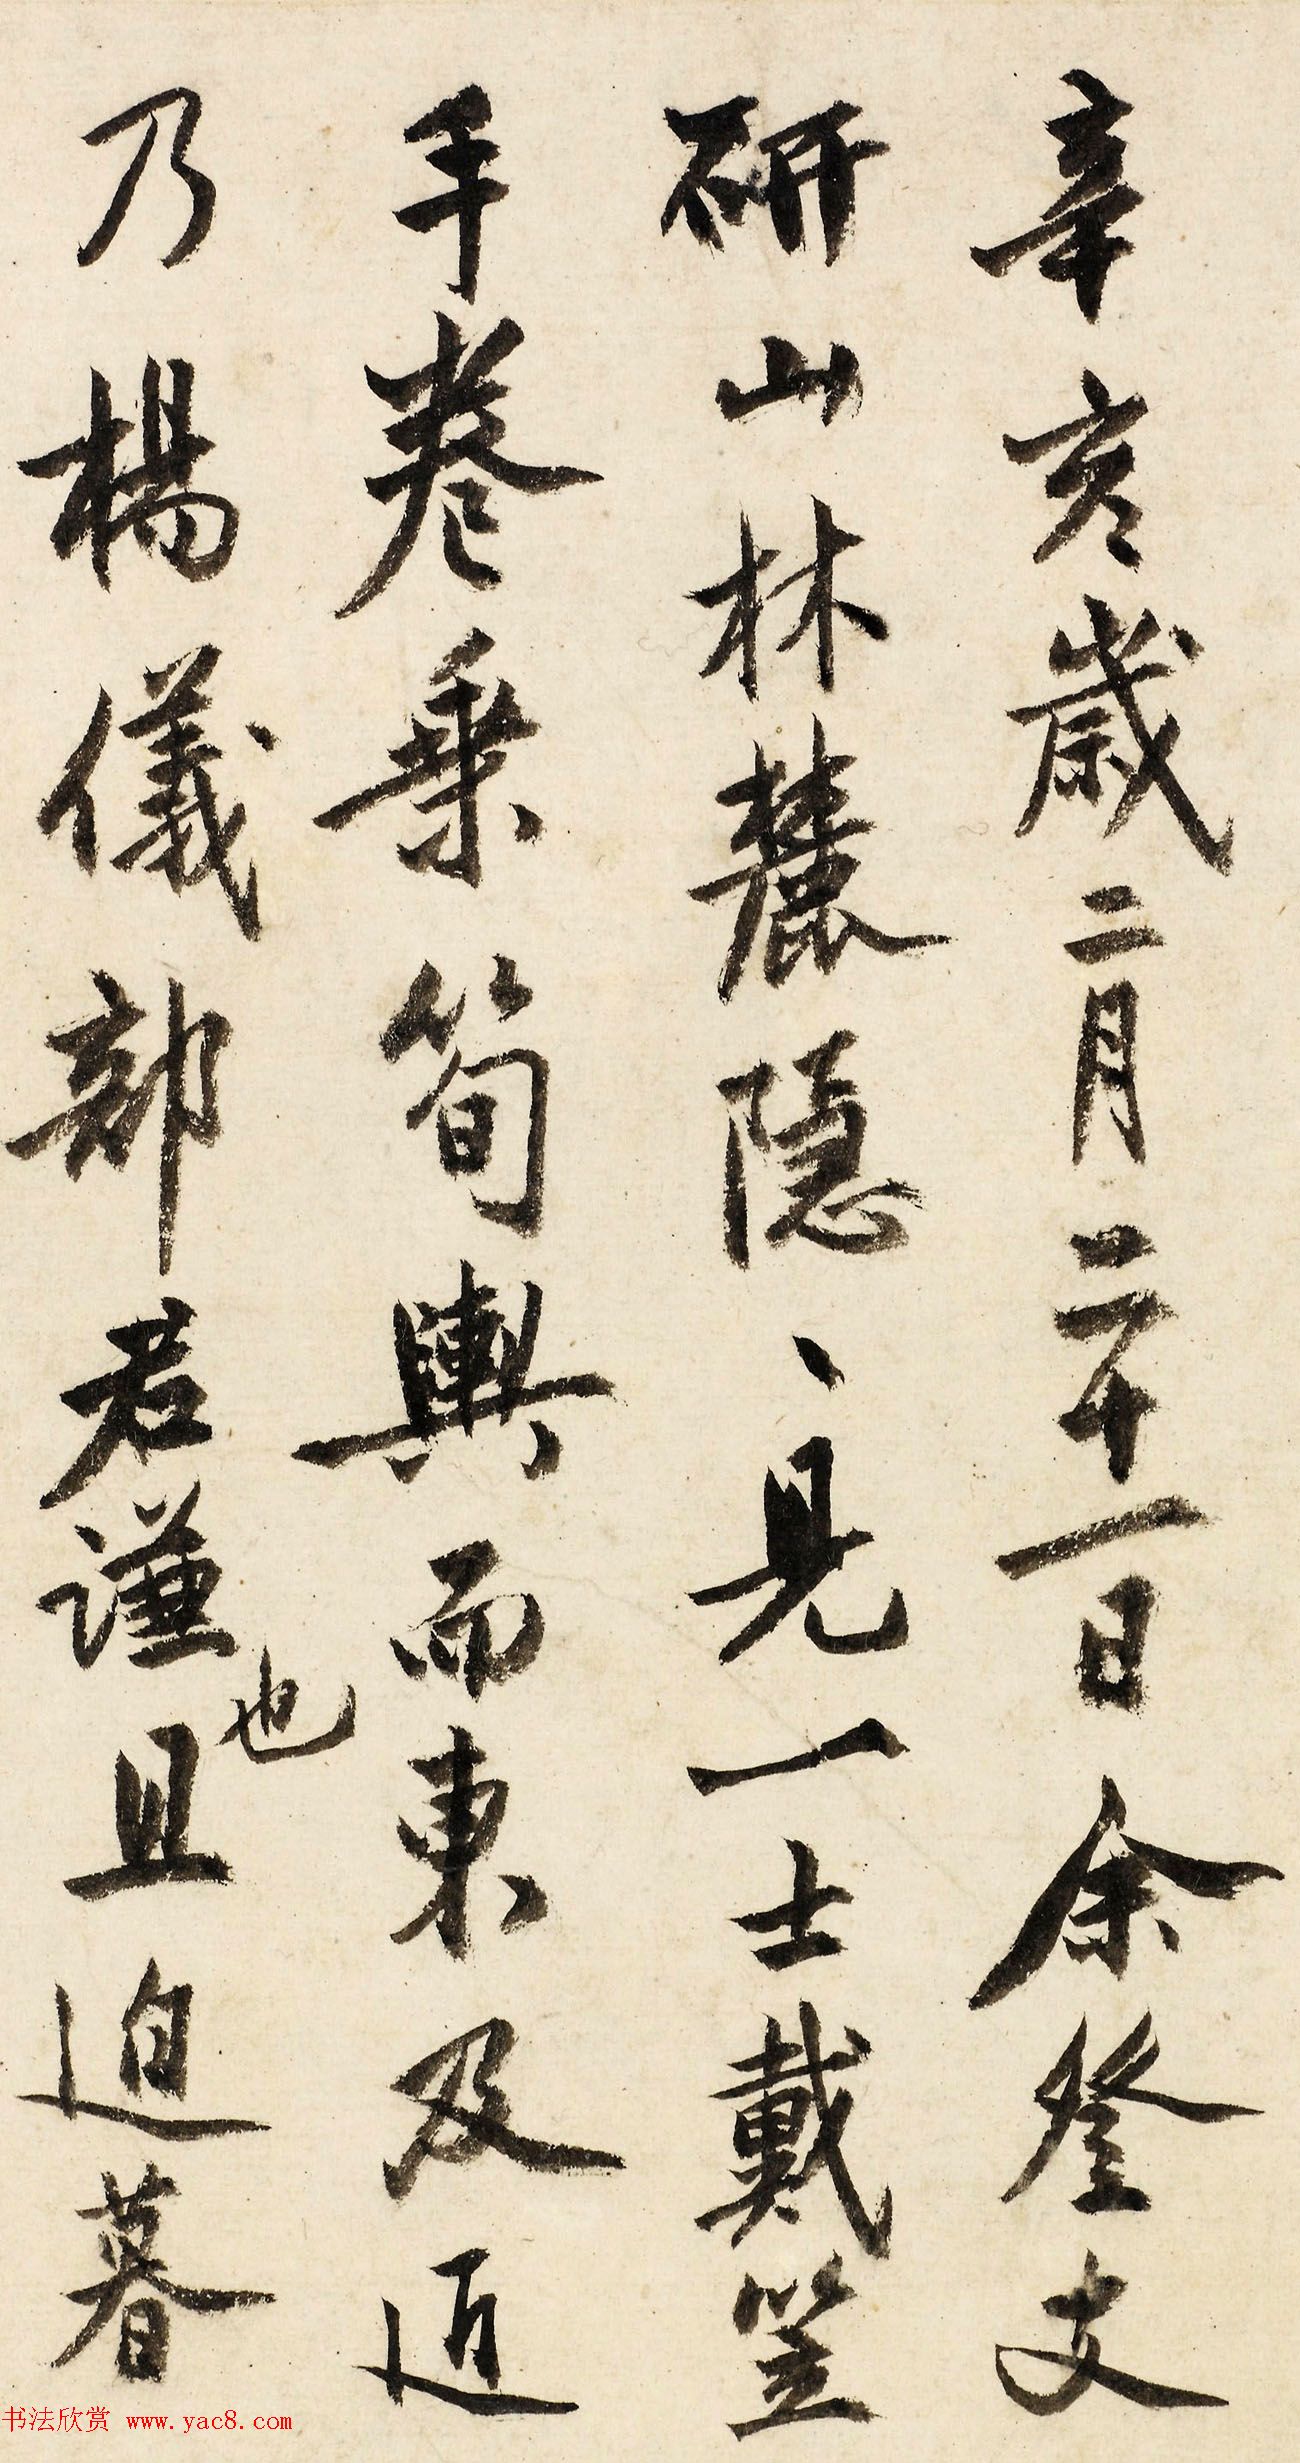 辛亥歲二月二十一日余登支
研山林麓隱、見一士戴笠
手卷乗筍輿而東及近
乃楊儀部君謙也且迫暮
书法欣赏 www.yac8.com